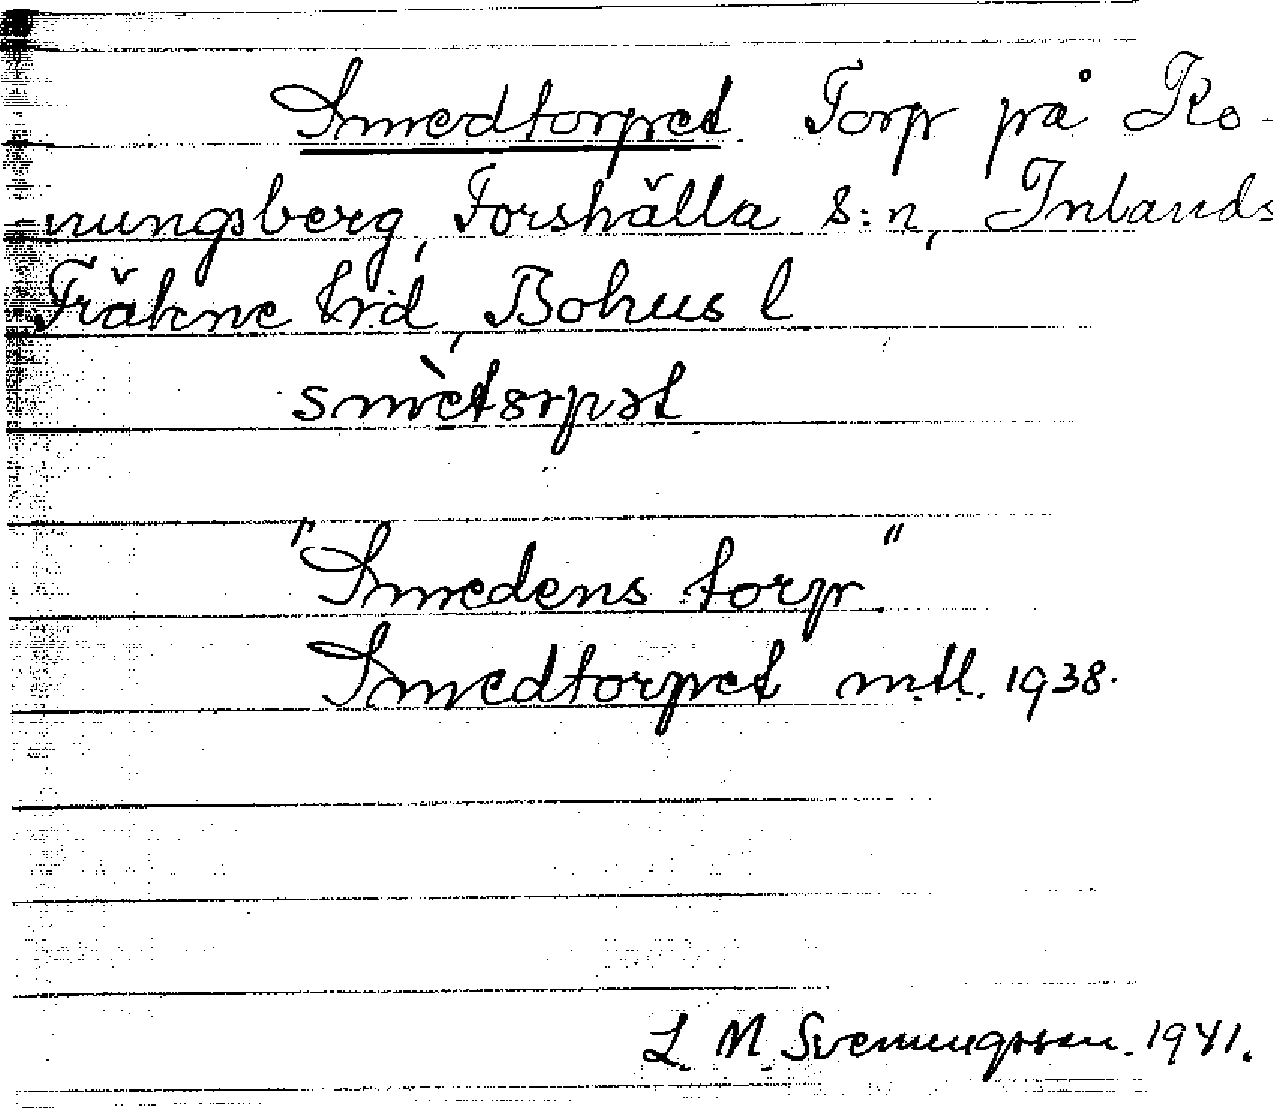 Smedtorpet Torp på Ko-
nungsberg, Forshälla s:n, Inlands
Fräkne hrd, Bohus l
smètorpət
"Smedens torp"
Smedtorpet m.tl. 1938.
L. M. Svenungsson. 1941.